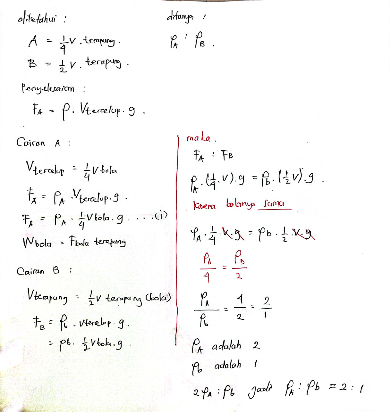 diketahui :
A = 1/4 V. terapung.
B = 1/2 V. terapung.
ditanya :
ρA : ρB
Penyelesaian :
FA = ρ. Vtercelup. g.
Cairan A :
Vtercelup = 1/4 Vbola
FA = ρA . Vtercelup. g.
FA = ρA . 1/4 Vbola. g. ....(i)
Wbola = Fbola terapung
Cairan B :
Vterapung = 1/2 V terapung (bola)
FB = ρb . Vtercelup. g.
= ρb. 1/2 Vbola. g.
maka.
FA : FB
ρA . (1/4 . V) . g = ρb . (1/2 V) . g.
Karena bolanya sama
ρA . 1/4 V. g = ρb . 1/2 V. g
ρA/4 = ρB/2
ρA/ρb = 4/2 = 2/1
ρA adalah 2
ρb adalah 1
2ρA : ρb jadi ρA : ρb = 2 : 1